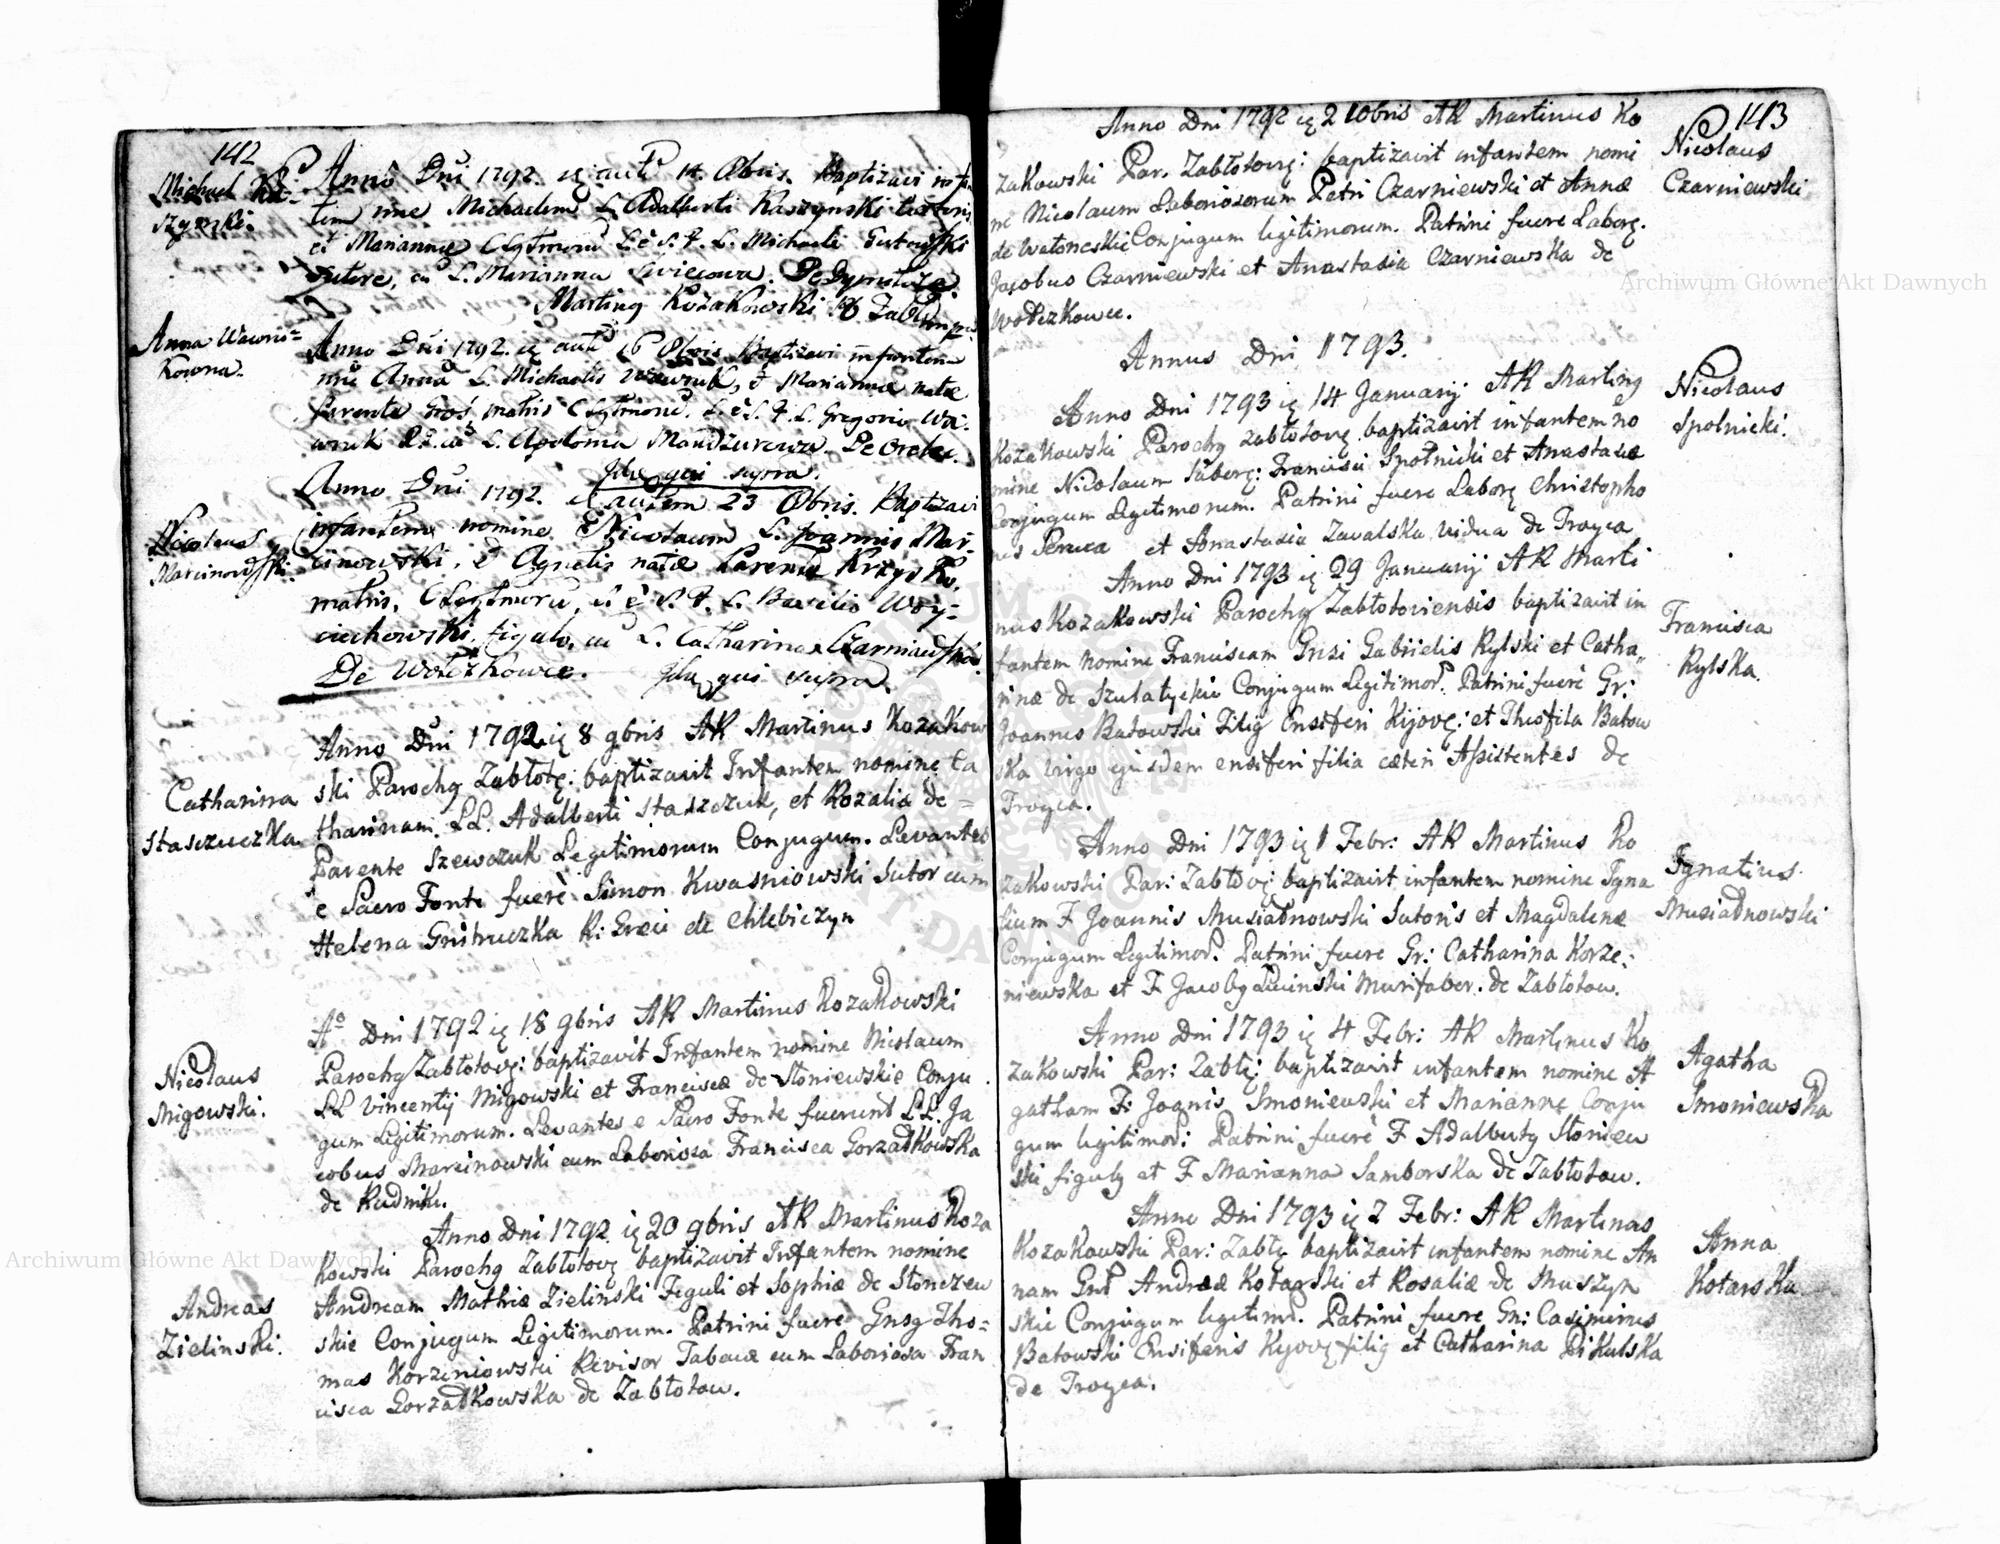 142
Michael Ka=
szynski.
Anno Dni 1792. ię aute 14 Obris. Baptizavi infan
tem nne Michaelem L. Adalberti Kaszynski
et Marianna C Lgtmoru L è S. F. L. Michaeli Gutowski
sutore, cu L. Marianna De Dymitrze.
Martinq Kozakowski
Anna Wawru=
kowna.
Anno Dni 1792. ię aute 16 Obris Baptizavi infantem
nne Anna L. Michaelis Wawruk, et Marianna nata
Parente matris C Lgtmoru. L. è S. F. L. Gregorio Wa:
wruk cu L. Apolonia Mandzurowa. De
Idq qui supra.
Nicolaus
Marcinowski.
Anno Dni 1792. ię autem 23 Obris. Baptizavi
infantem nomine Nicolaum L. Joannis Mar=
cinowski, et Agnetis nata Parente Krzysko,
matris. C Legtmoru, L è S. F. L. Basilio Woy=
ciechowski, figulo, cu L. Catharina Czarniawska
De Wołczkowce. Idq qui supra.
Catharina
Staszuczka
Anno Dni 1792 ię 8 9bris AR Martinus Kozakow
ski Parochq Zabłotę: baptizavit Infantem nomine Ca
tharinam. LL. Adalberti Staszczuk, et Rozalia de =
Parente Szewczuk Legitimorum Conjugum. Levantes
e Sacro Fonte fuerè Simon Kwasniowski Sutor cum
Helena Gritruczka R: Greci de Chlebiczyn
Nicolaus
Migowski.
Aº Dni 1792 ię 18 9bris AR Martinus Kozakowski
Parochq Zabłotovę: baptizavit Infantem nomine Nicolaum
LL Vincentij Migowski et Franciscæ de Słoniewskie Conju
gum Legitimorum. Levantes e Sacro Fonte fuerunt LL. Ja
cobus Marcinowski cum Laboriosa Francisca Gorzadkowska
de Rudniki.
Andreas
Zielinski.
Anno Dni 1792 ię 20 9bris AR Martinus Koza
kowski Parochq Zabłotovę baptizavit Infantem nomine
Andream Mathiæ Zielinski Figuli et Sophiæ de Słonczew
skie Conjugum Legitimorum. Patrini fuere Gnsq Tho=
mas Korzeniowski Revisor Tabacæ cum Laboriosa Fran
cisca Gorzadkowska de Zabłotow.
143
Nicolaus
Czarniewski
Anno Dni 1792 ię 2 10bris AR Martinus Ko
zakowski Par. Zabłotovę: baptizavit infantem nomi
ne Nicolaum Laboriosorum Petri Czarniewski et Annæ
de Watoneskie Conjugum legitimorum. Patrini fuere Laborę.
Jacobus Czarniewski et Anastasia Czarniewska de
Wołczkowce.
Annus Dni 1793.
Nicolaus
Spolnicki.
Anno Dni 1793 ię 14 Januarij AR Martinq
Kozakowski Parochq Zabłotovę baptizavit infantem no
mine Nicolaum Laborę: Francisci Społnicki et Anastasiæ
Conjugum Legitimorum. Patrini fuere Laborę Christopho
rus Peruca et Anastasia Zawalska vidua de Troyca
Francisca
Rylska.
Anno Dni 1793 ię 29 Januarij AR Marti
nus Kozakowski Parochq Zabłotoviensis baptizavit in
fantem nomine Franciscam Grsi Gabrielis Rylski et Catha„
rinæ de Szulatyckie Conjugum Legitimor. Patrini fuerè Gr:
Joannes Batowski Filiq Ensiferi Kijovę: et Theofila Batow
ska virgo ejusdem ensiferi filia cæteri Assistentes de
Troyca.
Ignatius
Musiadnowski
Anno Dni 1793 ię 1 Febr: AR Martinus Ko
zakowski Par: Zabłovę baptizavit infantem nomine Igna
tium F Joannis Musiadnowski Sutoris et Magdalenæ
Conjugum Legitimor. Patrini fuere Gr: Catharina Korze:
niewska et F. Jacobq Liwinski Murifaber. de Zabłotow.
Agatha
Smoniewska
Anno Dni 1793 ię 4 Febr: AR Martinus Ko
zakowski Par: Zabłę: baptizavit infantem nomine A
gatham F: Joanis Smoniewski et Mariannę Conju
gum legitimor: Patrini fuerè F Adalbertq Słoniew
ski figulq et F. Marianna Samborska de Zabłotow.
Anna
Kotarska
Anno Dni 1793 ię 7 Febr: AR Martinus
Kozakowski Par: Zabłę baptizavit infantem nomine An
nam Gnr Andreæ Kotarski et Rosaliæ de Muszyn
skie Conjugum legitimr. Patrini fuere Gr: Casimirus
Batowski Ensiferis Kijovę filiq et Catharina Pikulska
de Troyca.
Archiwum Główne Akt Dawnych
Archiwum Główne Akt Dawnych